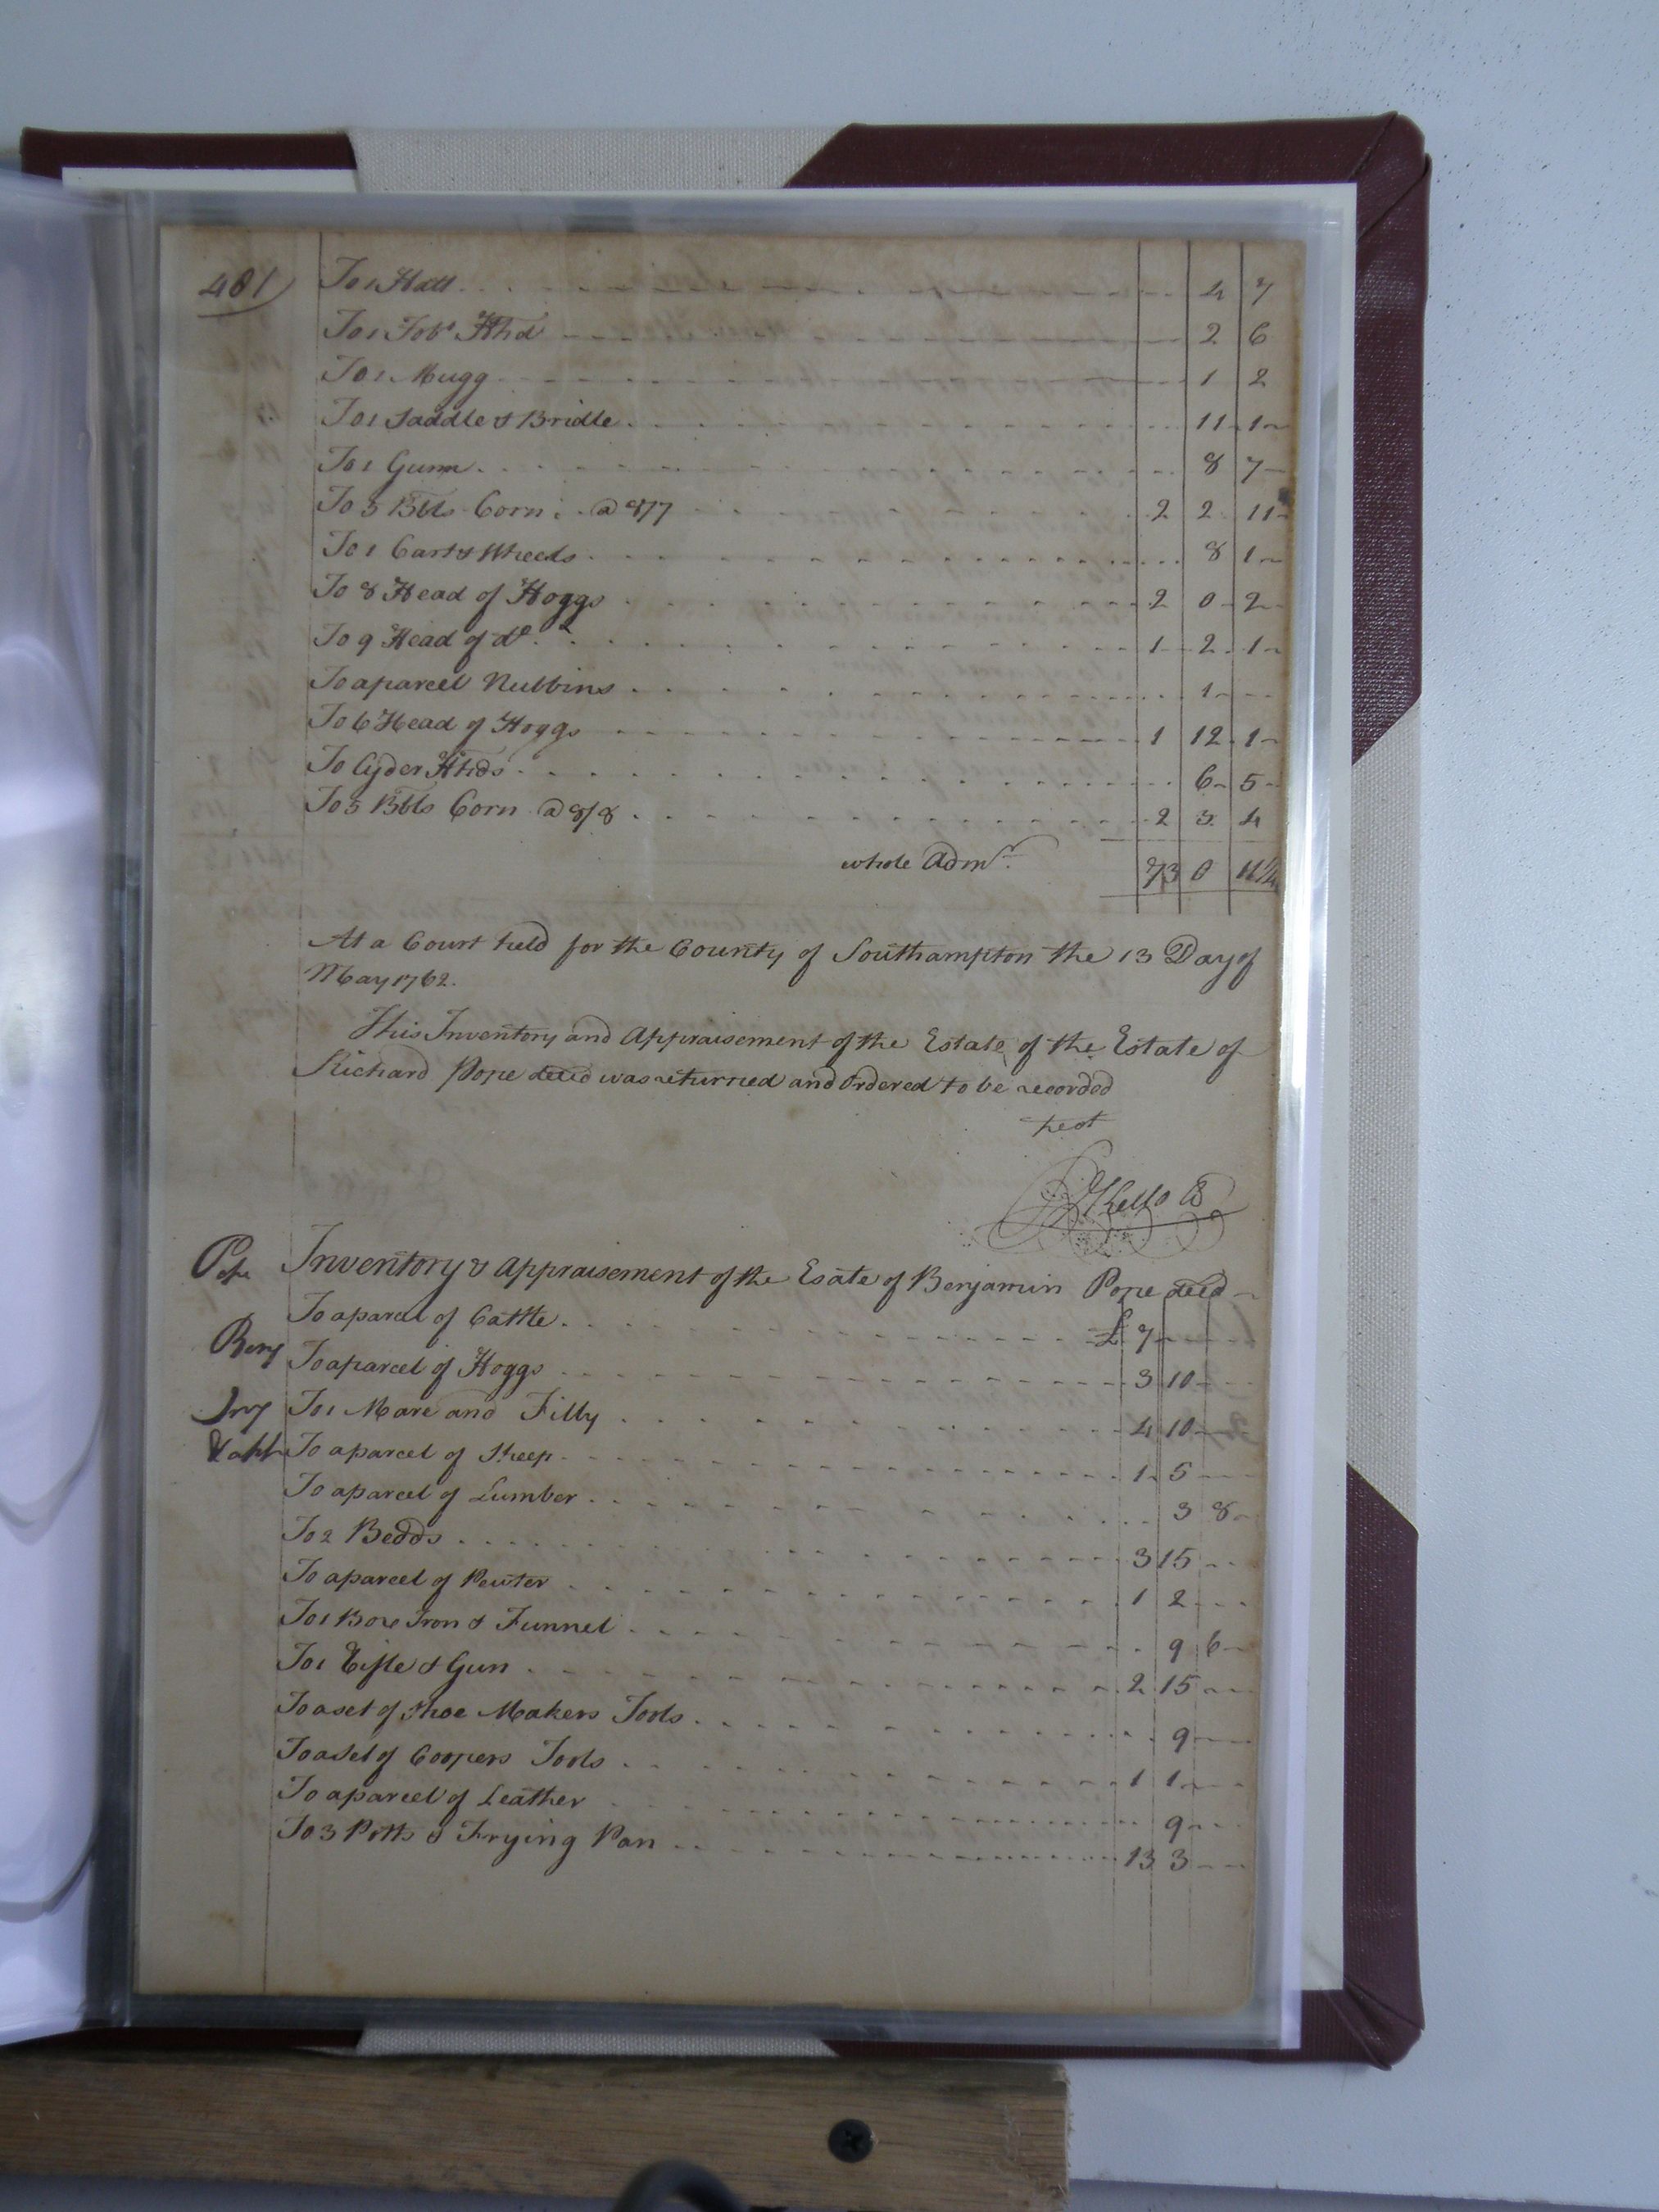 481
To 1 Hatt 4 7
To 1 Tobo Hhd 2 6
To 1 Mugg 1 2
To 1 Saddle & Bridle 11 1
To 1 Gunn 8 7
To 5 Bbls Corn @ 8/7 2 2 11
To 1 Cart & Wheels 8 1
To 8 Head of Hoggs 2 0 2
To 9 Head of do 1 2 1
To a parcel Nubbins 1
To 6 Head of Hoggs 1 12 1
To Cyder Hhds 6 5
To 5 Bbls Corn @ 8/8 2 3 4
whole Admr. 73 0
At a Court held for the County of Southampton the 13 Day of
May 1762.
This Inventory and Appraisement of the Estate of the Estate of
Richard Pope decd was returned and ordered to be recorded
Test
Kello
Pope Inventory & Appraisement of the Esate of Benjamin Pope decd
To a parcel of Cattle £ 7
Benj
To a parcel of Hoggs 3 10
Invy To 1 Mare and Filly 4 10
To a parcel of Sheep 1 5
To a parcel of Lumber 3 8
To 2 Bedds 3 15
To a parcel of Pewter 1 2
To 1 Box Iron & Funnel 9 6
To 1 & Gun 2 15
To a set of Shoe Makers Tools 9
To a Set of Coopers Tools 1 1
To a parcel of Leather 9
To 3 Potts & Frying Pan 13 3